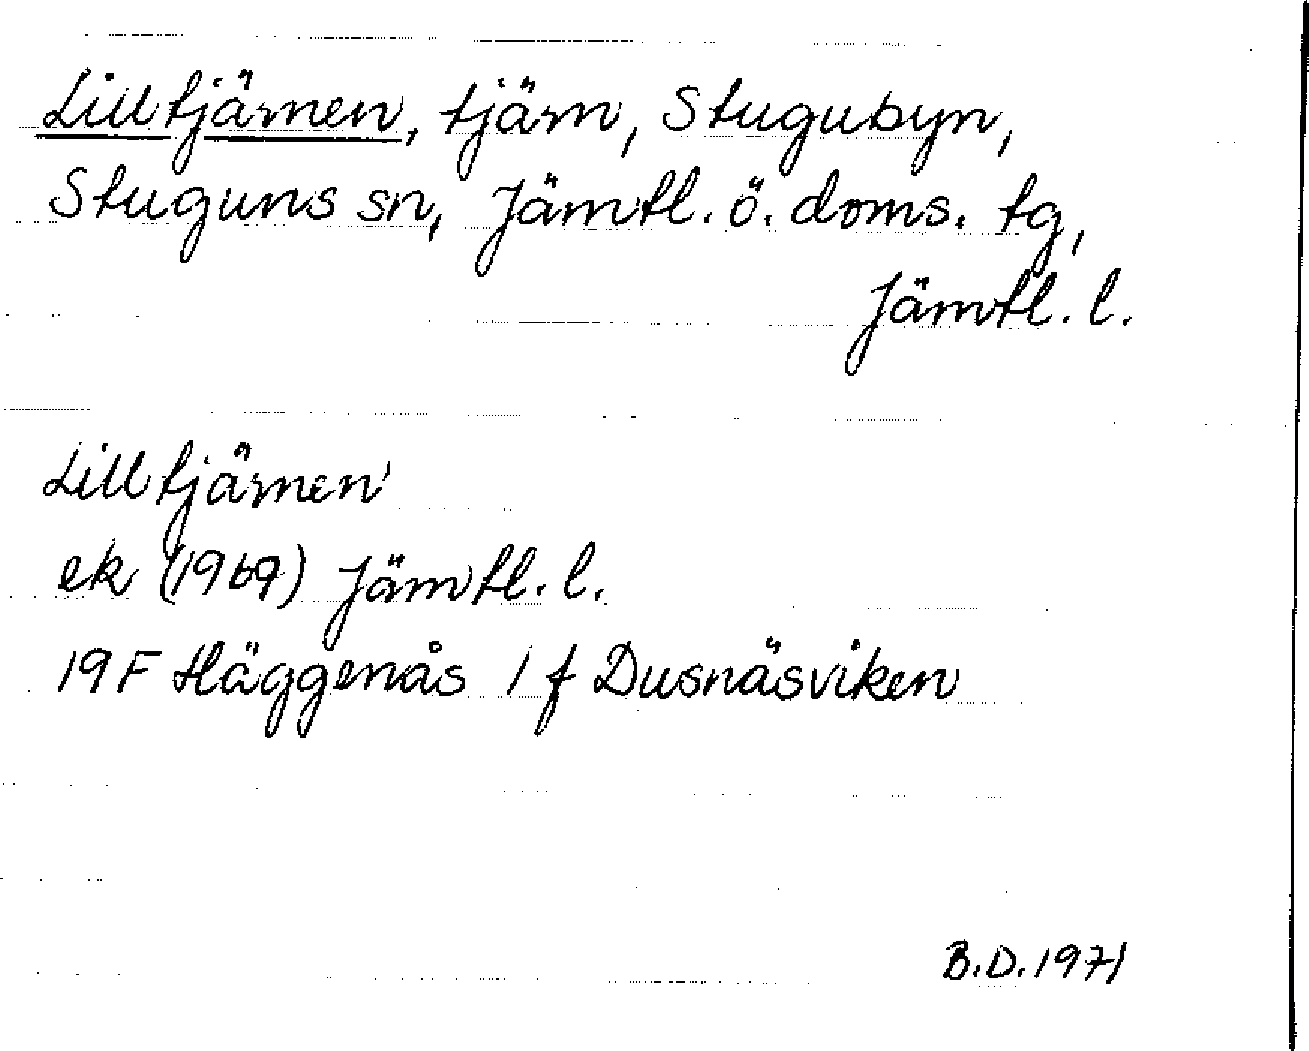 Lilltjärnen, tjärn, Stugubyn,
Stuguns sn, Jämtl. ö. doms. tg,
Jämtl. l.
Lilltjärnen
ek (1969) Jämtl. l.
19F Häggenås 1 f Dusnäsviken
B.D. 1971